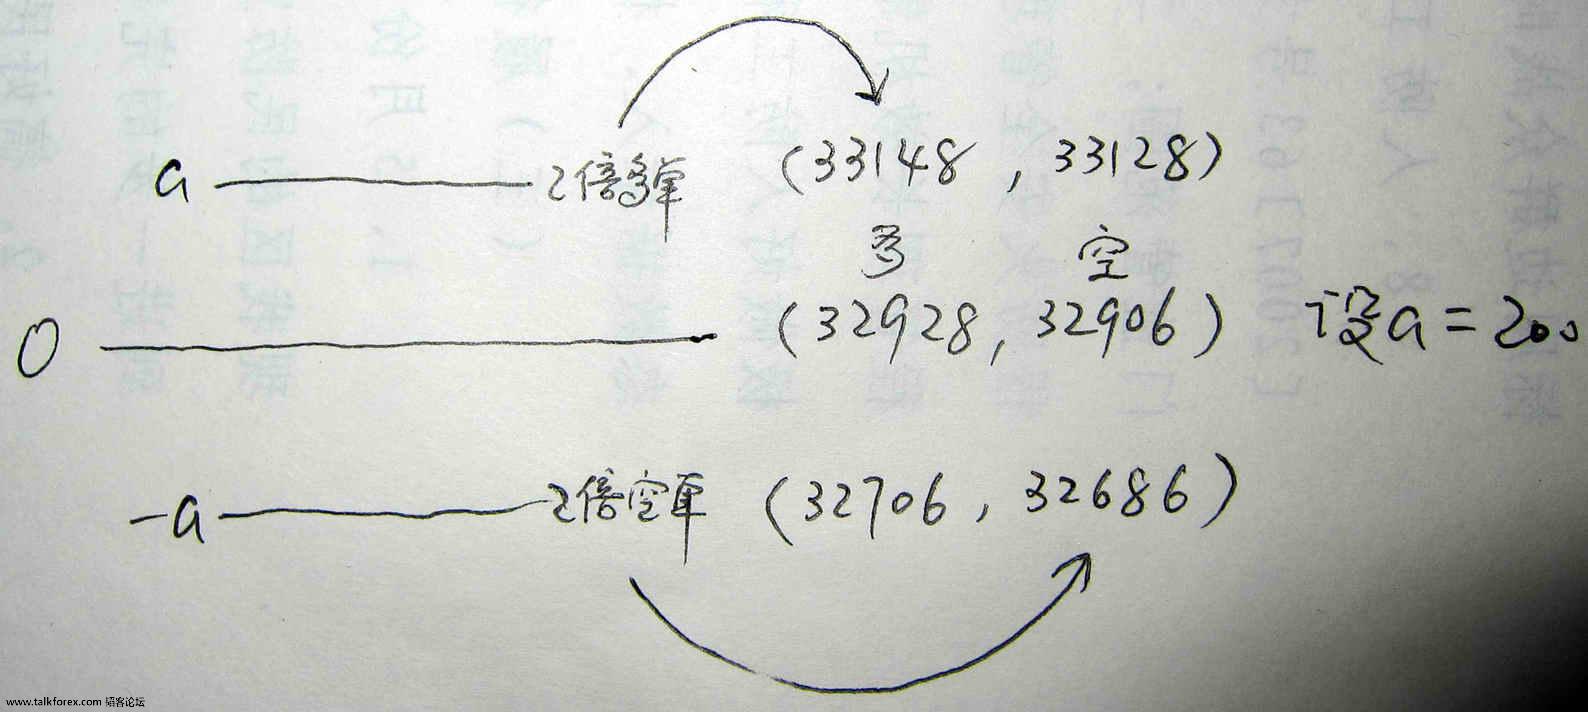 a 2倍多单 (33148, 33128)
多 空
0 (32928, 32906) 设a=200
-a 2倍空单 (32706, 32686)
www.talkforex.com